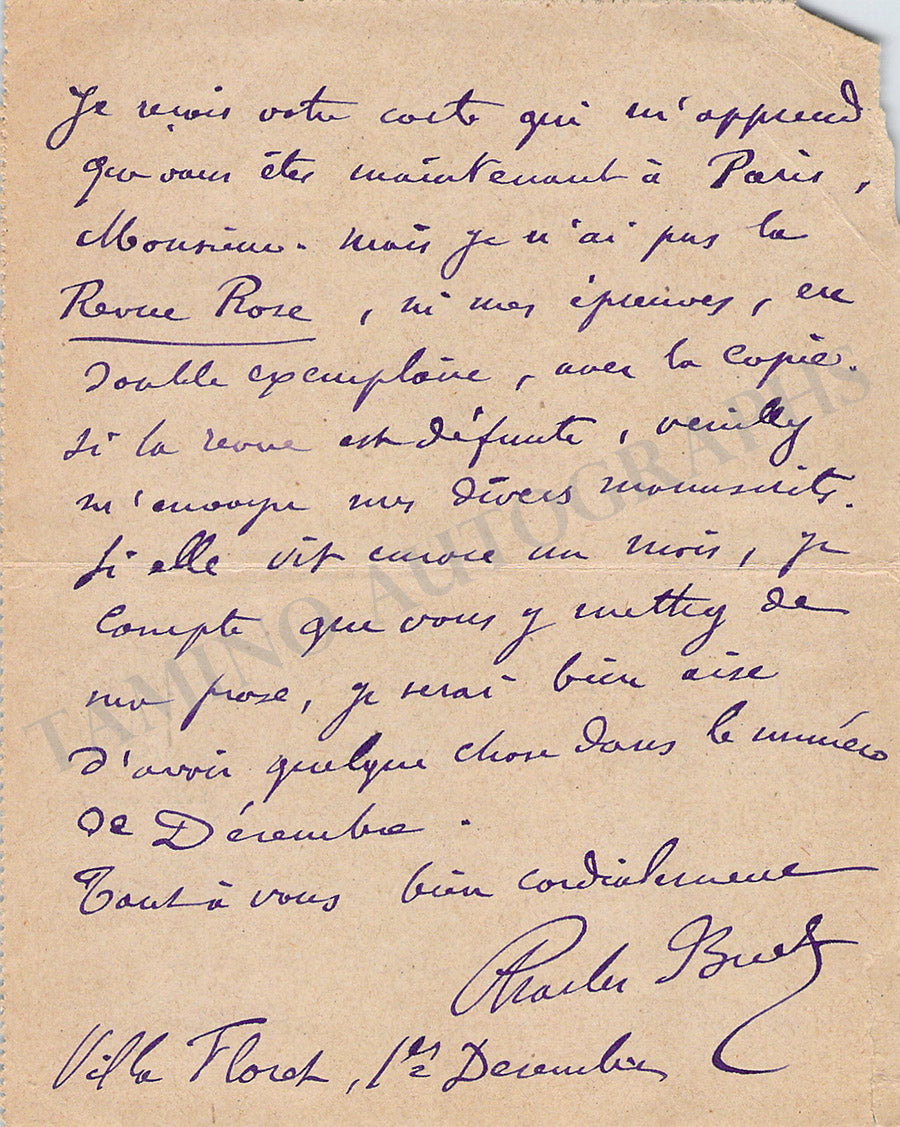 Je reçois votre carte qui m'apprend
que vous êtes maintenant à Paris,
Monsieur. mais je n'ai pas la
Revue Rose, ni mes épreuves, en
double exemplaire, avec la copie.
Si la revue est défunte, veuillez
m'envoyer mes divers manuscrits.
Si elle vit encore un mois, je
compte que vous y mettez de
ma prose, je serai bien aise
d'avoir quelque chose dans le numéro
de Décembre.
Tout à vous bien cordialement
Charles Buet
Villa Floret, 1er Decembre
TAMINO AUTOGRAPHS